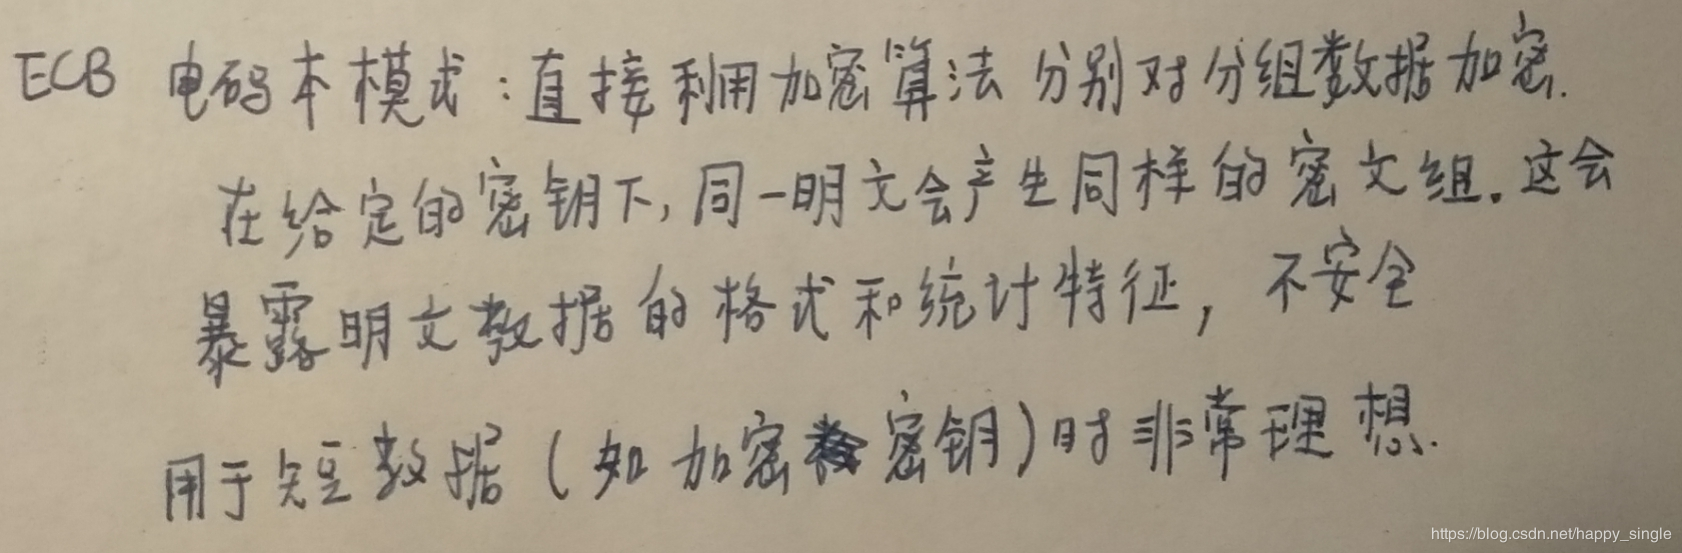 ECB 电码本模式：直接利用加密算法 分别对分组数据加密.
在给定的密钥下，同一明文会产生同样的密文组。这会
暴露明文数据的格式和统计特征，不安全
用于短数据（如加密密钥）时非常理想.
https://blog.csdn.net/happy_single